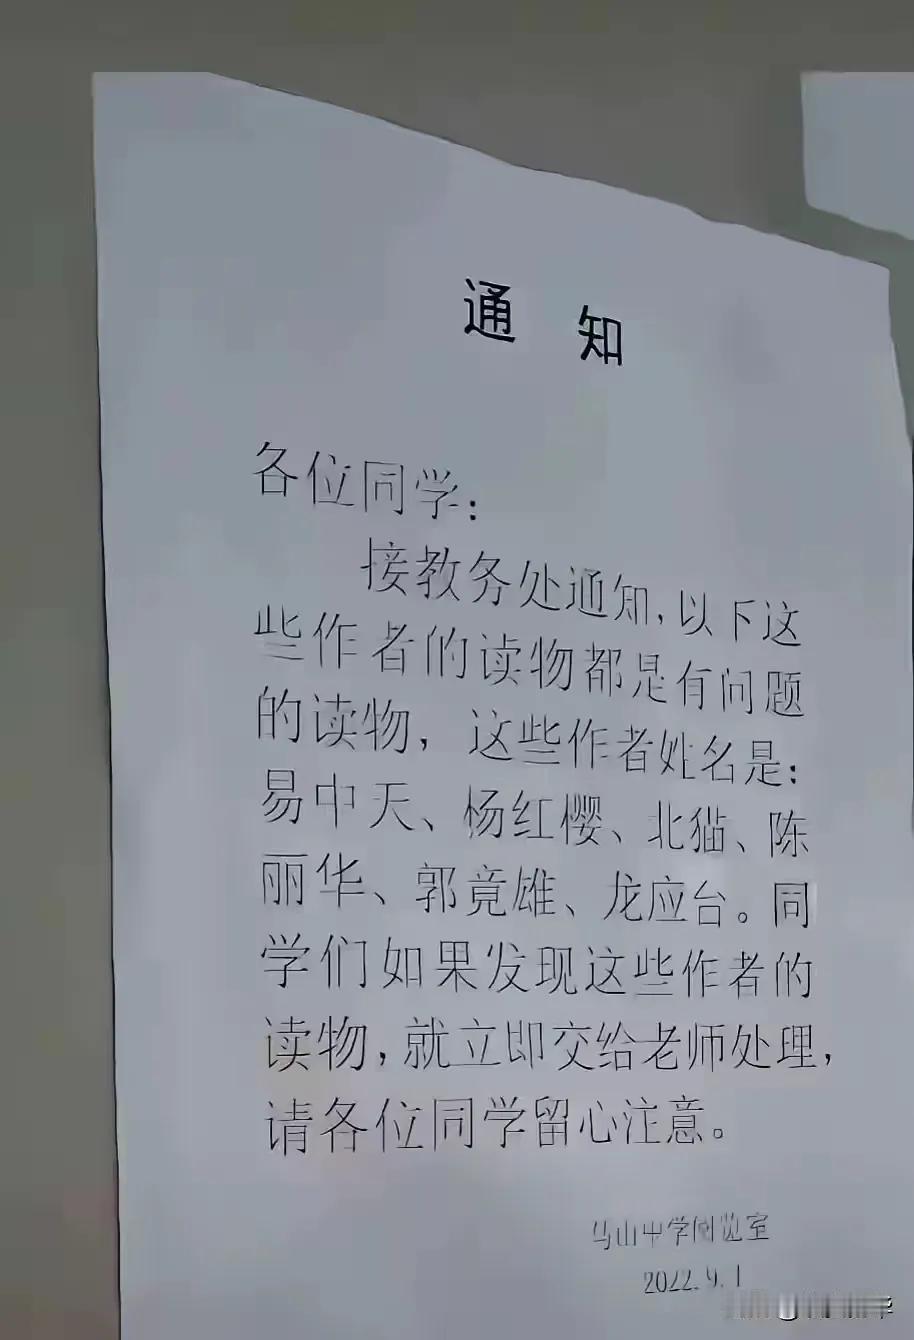 通 知
各位同学：
接教务处通知，以下这
些作者的读物都是有问题
的读物，这些作者姓名是：
易中天、杨红樱、北猫、陈
丽华、郭竟雄、龙应台。同
学们如果发现这些作者的
读物，就立即交给老师处理，
请各位同学留心注意。
马山中学阅览室
2022.9.1